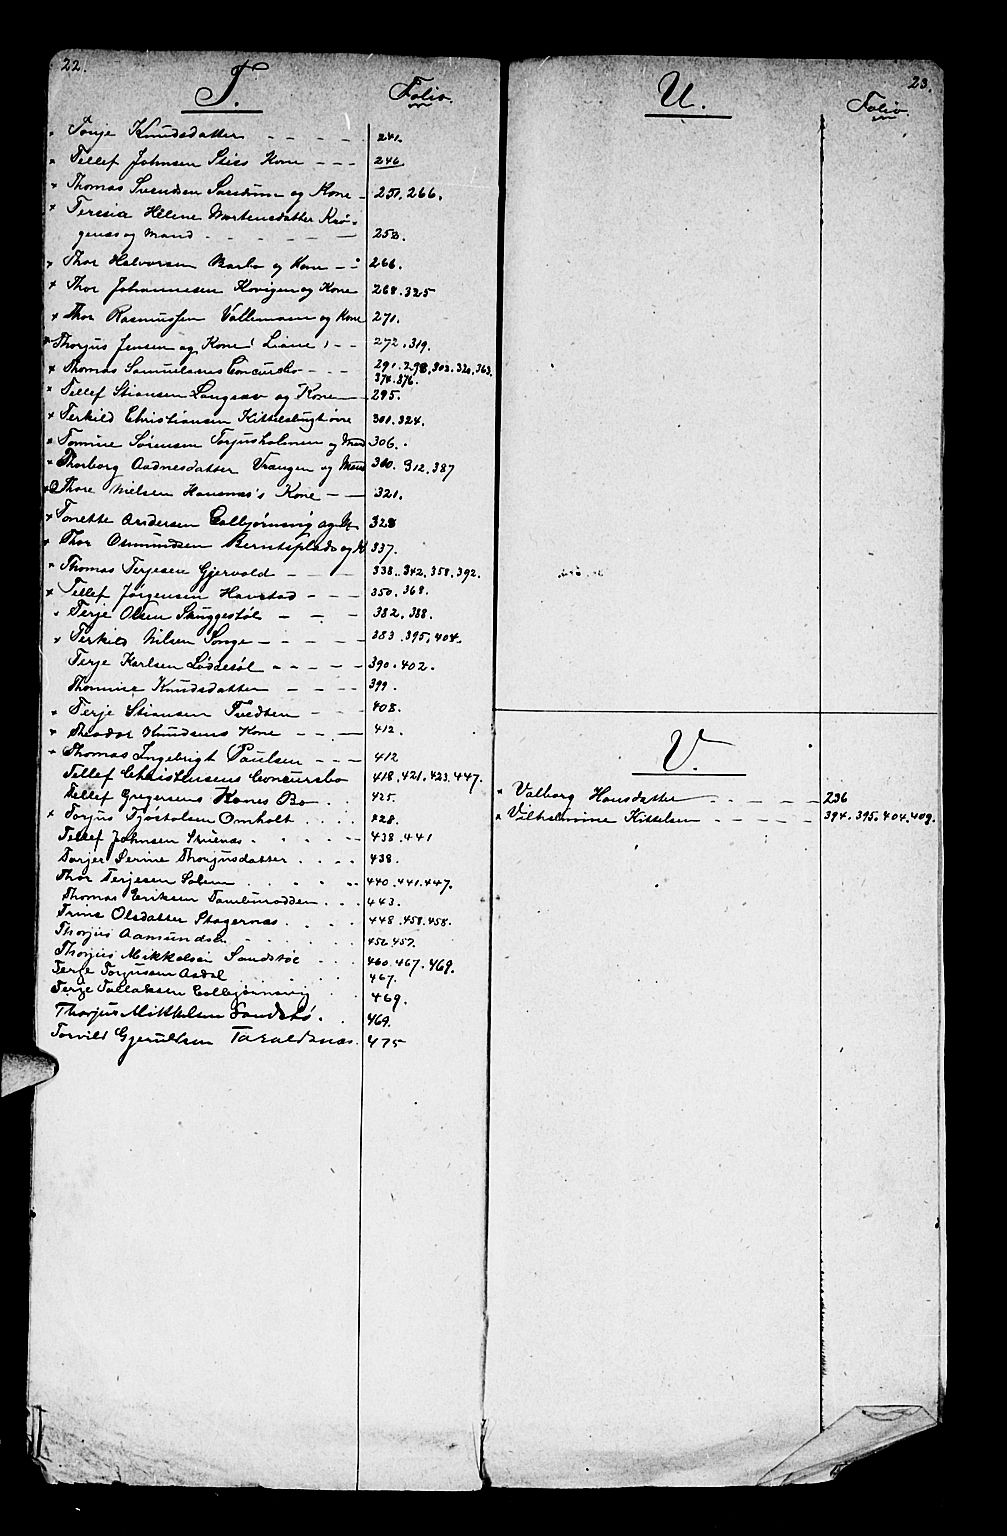 22.
T.
Folio.
Tonje Knudsdatter 241.
Tellef Johnsen Kone 246
Thomas Svendsen og Kone 251. 266.
Teresia Helene Mortensdatter Krø-
genes og Mand 252.
Thor Halvorsen Barbo og Kone 266.
Thor Johannesen Kovigen og Kone 268. 325
Thor Rasmussen Vallemoen og Kone 271.
Thorjus Jensen og Kone (Liane) 272. 319.
Thomas Samuelsens Concursbo 291. 298. 303. 320. 363.
374. 376.
Tellef Stiansen Langsæv og Kone 295.
Terkild Christiansen Kittelsbugt 301. 324.
Tomine Sørensen Torjusholmen og Mand 306.
Thorborg Aadnesdatter Vrangen og Mand 310. 312. 387
Thore Nielsen Hansnæs's Kone 321.
Tonette Andersen Colbjørnsvig og M. 328
Thor Osmundsen Berntsplads og K 337.
Thomas Terjesen Gjervold 338. 342. 358. 392.
Tellef Jørgensen Havstad 350. 368.
Terje Olsen Skuggestøl 382. 388.
Terkild Nilsen Songe 283. 395. 404.
Terje Karlsen Løddesøl 390. 402.
Thomine Knudsdatter 399.
Terje Stiansen Tvedten 408.
Theodor Knudsens Kone 412.
Thomas Ingebrigt Paulsen 412
Tellef Christensens Concursbo 418. 421. 423. 447.
Tellef Gregersens Kones Bo 425.
Torjus Tjøstolsen Omholt 428.
Tellef Johnsen Struenæs 438. 441
Torjer Serine Thorjusdatter 438.
Thor Terjesen Solem 440. 441. 447.
Thomas Eriksen Tambursodden 443.
Trine Olsdatter Stagernæs 448. 458. 458.
Thorjus Aamundsen 452. 457.
Thorjus Mikkelsen Sandstøe 460. 467. 469.
Terje Torjusen Asdal 467.
Terje Tallaksen Colbjørnsvig 469.
Thorjus Mikkelsen Sandstø. 469.
Torvild Gjerulfsen Taraldsnæs. 475
23.
U.
Folio.
V.
Valborg Hansdatter 236
Vilhelmine Kittelsen 394. 395. 404. 409.